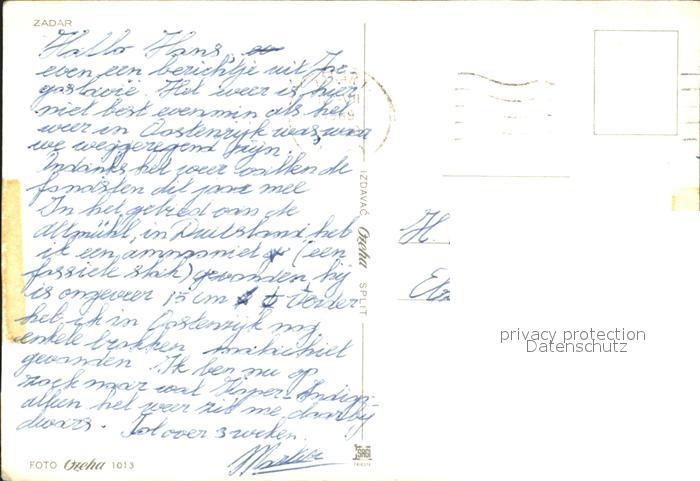 ZADAR
Hallo Hans,
even een berichtje uit Joe
goslavië. Het weer is hier
niet best evenmin als het
weer in Oostenrijk was, waar
we weggeregend zijn.
Ondanks het weer vallen de
fondsten dit jaar mee
In het gebied van de
Altmühl, in Duitsland heb
ik een ammoniet (een
fossiele slak) gevonden hij
is ongeveer 15 cm Verder
heb ik in Oostenrijk nog
enkele brokken malachiet
gevonden. Ik ben nu op
zoek naar wat
alleen het weer zit me daarbij
dwars. Tot over 3 weken.
FOTO Ozeha 1013
IZDAVAČ Ozeha SPLIT
H.
privacy protection
Datenschutz